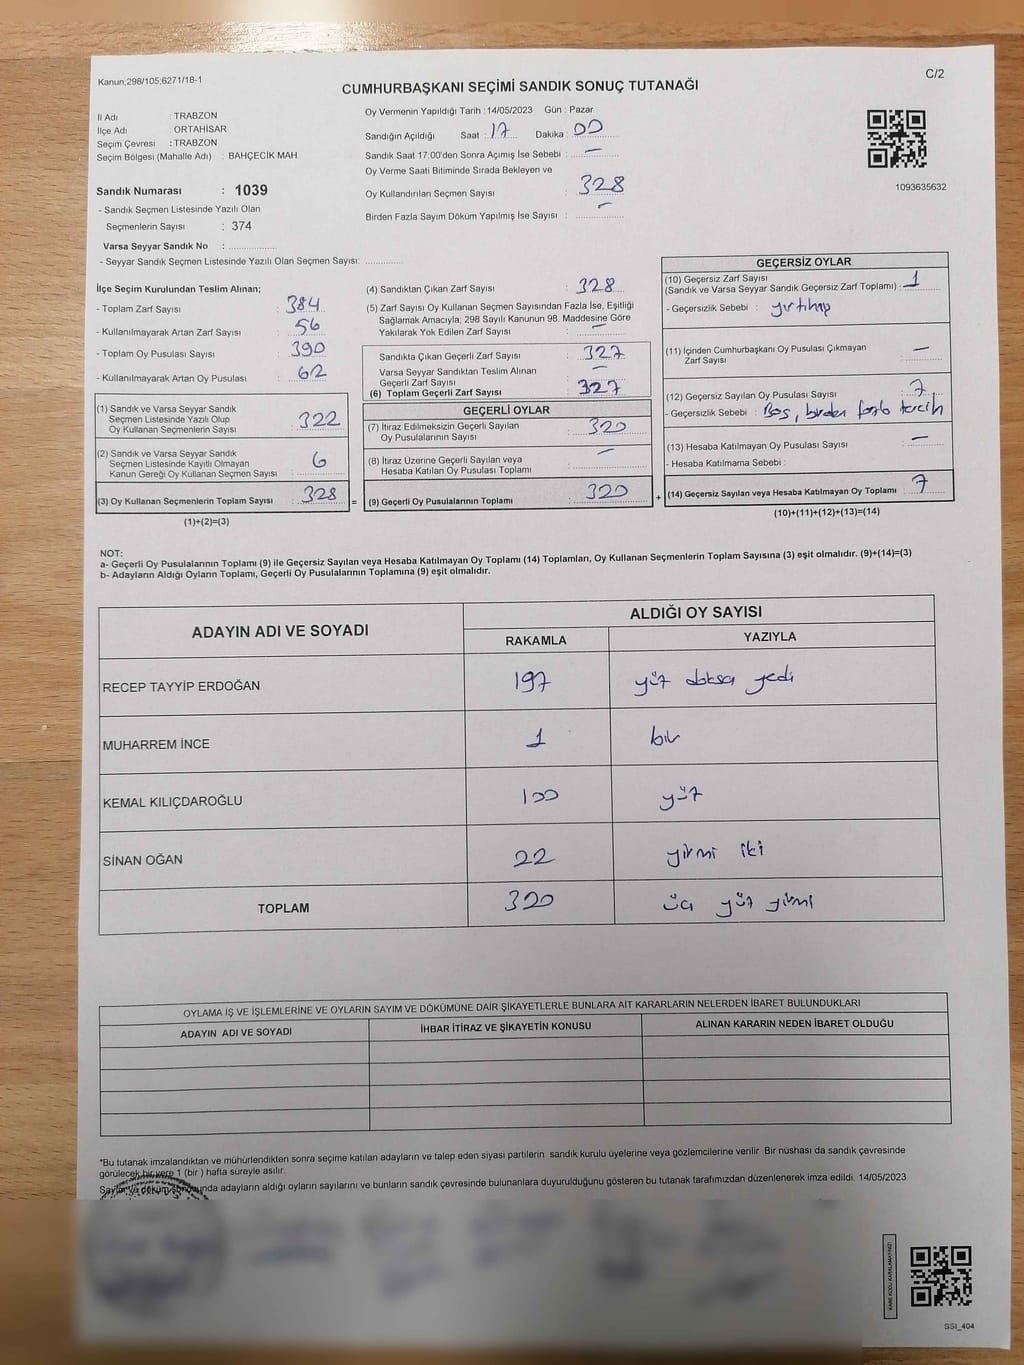 Kanun;298/105;6271/18-1
C/2
CUMHURBAŞKANI SEÇİMİ SANDIK SONUÇ TUTANAĞI
İl Adı : TRABZON
İlçe Adı : ORTAHİSAR
Seçim Çevresi : TRABZON
Seçim Bölgesi (Mahalle Adı) : BAHÇECİK MAH
Sandık Numarası : 1039
- Sandık Seçmen Listesinde Yazılı Olan
Seçmenlerin Sayısı : 374
Varsa Seyyar Sandık No :
- Seyyar Sandık Seçmen Listesinde Yazılı Olan Seçmen Sayısı:
Oy Vermenin Yapıldığı Tarih : 14/05/2023 Gün : Pazar
Sandığın Açıldığı Saat : 17 Dakika : 00
Sandık Saat 17:00'den Sonra Açımış İse Sebebi : —
Oy Verme Saati Bitiminde Sırada Bekleyen ve
Oy Kullandırılan Seçmen Sayısı : 328
Birden Fazla Sayım Döküm Yapılmış İse Sayısı : —
1093635632
İlçe Seçim Kurulundan Teslim Alınan;
- Toplam Zarf Sayısı : 384
- Kullanılmayarak Artan Zarf Sayısı : 56
- Toplam Oy Pusulası Sayısı : 390
- Kullanılmayarak Artan Oy Pusulası : 62
(1) Sandık ve Varsa Seyyar Sandık
Seçmen Listesinde Yazılı Olup
Oy Kullanan Seçmenlerin Sayısı : 322
(2) Sandık ve Varsa Seyyar Sandık
Seçmen Listesinde Kayıtlı Olmayan
Kanun Gereği Oy Kullanan Seçmen Sayısı : 6
(3) Oy Kullanan Seçmenlerin Toplam Sayısı : 328 =
(1)+(2)=(3)
(4) Sandıktan Çıkan Zarf Sayısı : 328
(5) Zarf Sayısı Oy Kullanan Seçmen Sayısından Fazla İse, Eşitliği
Sağlamak Amacıyla; 298 Sayılı Kanunun 98. Maddesine Göre
Yakılarak Yok Edilen Zarf Sayısı : —
Sandıkta Çıkan Geçerli Zarf Sayısı : 327
Varsa Seyyar Sandıktan Teslim Alınan
Geçerli Zarf Sayısı : —
(6) Toplam Geçerli Zarf Sayısı : 327
GEÇERLİ OYLAR
(7) İtiraz Edilmeksizin Geçerli Sayılan
Oy Pusulalarının Sayısı : 320
(8) İtiraz Üzerine Geçerli Sayılan veya
Hesaba Katılan Oy Pusulası Toplamı : —
(9) Geçerli Oy Pusulalarının Toplamı : 320 +
GEÇERSİZ OYLAR
(10) Geçersiz Zarf Sayısı
(Sandık ve Varsa Seyyar Sandık Geçersiz Zarf Toplamı) : 1
- Geçersizlik Sebebi : yırtılmış
(11) İçinden Cumhurbaşkanı Oy Pusulası Çıkmayan
Zarf Sayısı : —
(12) Geçersiz Sayılan Oy Pusulası Sayısı : 7
- Geçersizlik Sebebi : Boş, birden fazla tercih
(13) Hesaba Katılmayan Oy Pusulası Sayısı : —
- Hesaba Katılmama Sebebi :
(14) Geçersiz Sayılan veya Hesaba Katılmayan Oy Toplamı : 7
(10)+(11)+(12)+(13)=(14)
NOT:
a- Geçerli Oy Pusulalarının Toplamı (9) ile Geçersiz Sayılan veya Hesaba Katılmayan Oy Toplamı (14) Toplamları, Oy Kullanan Seçmenlerin Toplam Sayısına (3) eşit olmalıdır. (9)+(14)=(3)
b- Adayların Aldığı Oyların Toplamı, Geçerli Oy Pusulalarının Toplamına (9) eşit olmalıdır.
ADAYIN ADI VE SOYADI
ALDIĞI OY SAYISI
RAKAMLA YAZIYLA
RECEP TAYYİP ERDOĞAN 197 yüz doksan yedi
MUHARREM İNCE 1 bir
KEMAL KILIÇDAROĞLU 100 yüz
SİNAN OĞAN 22 yirmi iki
TOPLAM 320 üç yüz yirmi
OYLAMA İŞ VE İŞLEMLERİNE VE OYLARIN SAYIM VE DÖKÜMÜNE DAİR ŞİKAYETLERLE BUNLARA AİT KARARLARIN NELERDEN İBARET BULUNDUKLARI
ADAYIN ADI VE SOYADI İHBAR İTİRAZ VE ŞİKAYETİN KONUSU ALINAN KARARIN NEDEN İBARET OLDUĞU
*Bu tutanak imzalandıktan ve mühürlendikten sonra seçime katılan adayların ve talep eden siyasi partilerin sandık kurulu üyelerine veya gözlemcilerine verilir. Bir nüshası da sandık çevresinde
görülecek bir yere 1 (bir ) hafta süreyle asılır.
Sayım ve döküm sonunda adayların aldığı oyların sayılarını ve bunların sandık çevresinde bulunanlara duyurulduğunu gösteren bu tutanak tarafımızdan düzenlenerek imza edildi. 14/05/2023
KARE KODU KARALAMAYINIZ!
SSI_404